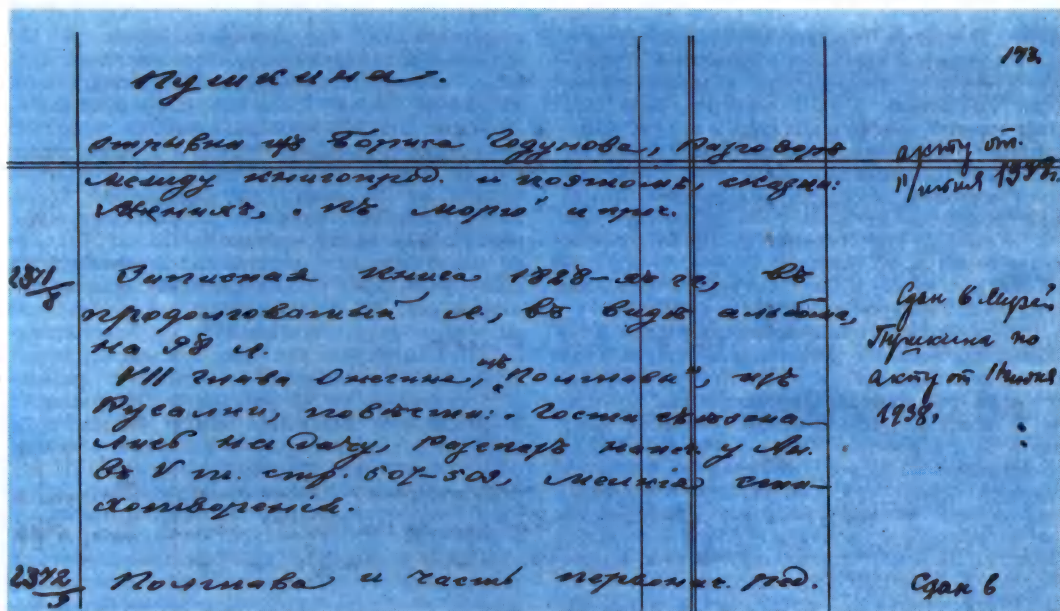 193.
Пушкина.
отрывки изъ Бориса Годунова, Разговоръ
между книгопрод. и поэтомъ, сказки:
Женихъ, "Къ морю" и проч.
акту от
11/июня 1938г.
2371/8 Записная книга 1828-хъ гг., въ
продолговатый л., въ видѣ альбома,
на 98 л.
VII глава Онегина, изъ "Полтавы", изъ
Русалки, повѣсти: "Гости съѣзжа-
лись на дачу, Разсказъ напеч. у Ан.
въ V т. стр. 507-509, мелкія сти-
хотворенія.
Сдан в Музей
Пушкина по
акту от 11 июня
1938.
2372/9 Полтава и часть первонач. ред.
Сдан в